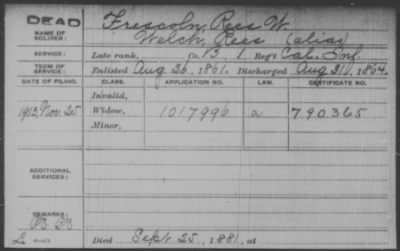 DEAD
NAME OF SOLDIER:
Frescoln, Rees W.
Welch, Rees (alias)
SERVICE:
Late rank, Co. B, 1 Reg't Cal. Inf.
TERM OF SERVICE:
Enlisted Aug. 26, 1861. Discharged Aug 31, 1864.
DATE OF FILING. CLASS. APPLICATION NO. CERTIFICATE NO.
Invalid,
1913, Nov. 25 Widow, 1017996 a 790365
Minor,
ADDITIONAL SERVICES:
REMARKS:
Died Sept. 25, 1881, at